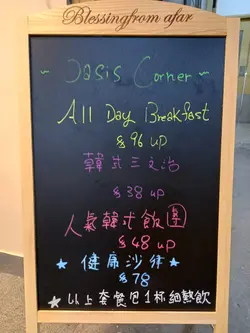 Blessingfrom afar
~ Oasis Corner ~
All Day Breakfast
$ 96 up
韓式三文治
$ 38 up
人氣韓式飯團
$ 48 up
★ 健康沙律 ★
$ 78
★ 以上套餐包1杯細熱飲